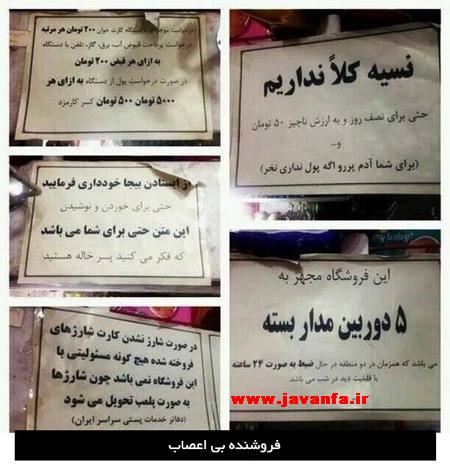 درخواست موجودی از دستگاه کارت خوان ۲۰۰ تومان هر مرتبه
درخواست پرداخت قبوض آب، برق، گاز، تلفن با دستگاه
به ازای هر قبض ۲۰۰ تومان
در صورت درخواست پول از دستگاه به ازای هر
۵۰۰۰ تومان ۵۰۰ تومان کسر کارمزد
نسیه کلاً نداریم
حتی برای نصف روز و به ارزش ناچیز ۵۰ تومان
و...
(برای شما آدم پررو اگه پول نداری نخر)
از ایستادن بیجا خودداری فرمایید
حتی برای خوردن و نوشیدن
این متن حتی برای شما می باشد
که فکر می کنید پسر خاله هستید
این فروشگاه مجهز به
۵ دوربین مدار بسته
می باشد که همزمان در دو منطقه در حال ضبط به صورت ۲۴ ساعته
با قابلیت دید در شب می باشد
www.javanfa.ir
در صورت شارژ نشدن کارت شارژهای
فروخته شده هیچ گونه مسئولیتی با
این فروشگاه نمی باشد چون شارژها
به صورت پلمپ تحویل می شود
(دفاتر خدمات پستی سراسر ایران)
فروشنده بی اعصاب